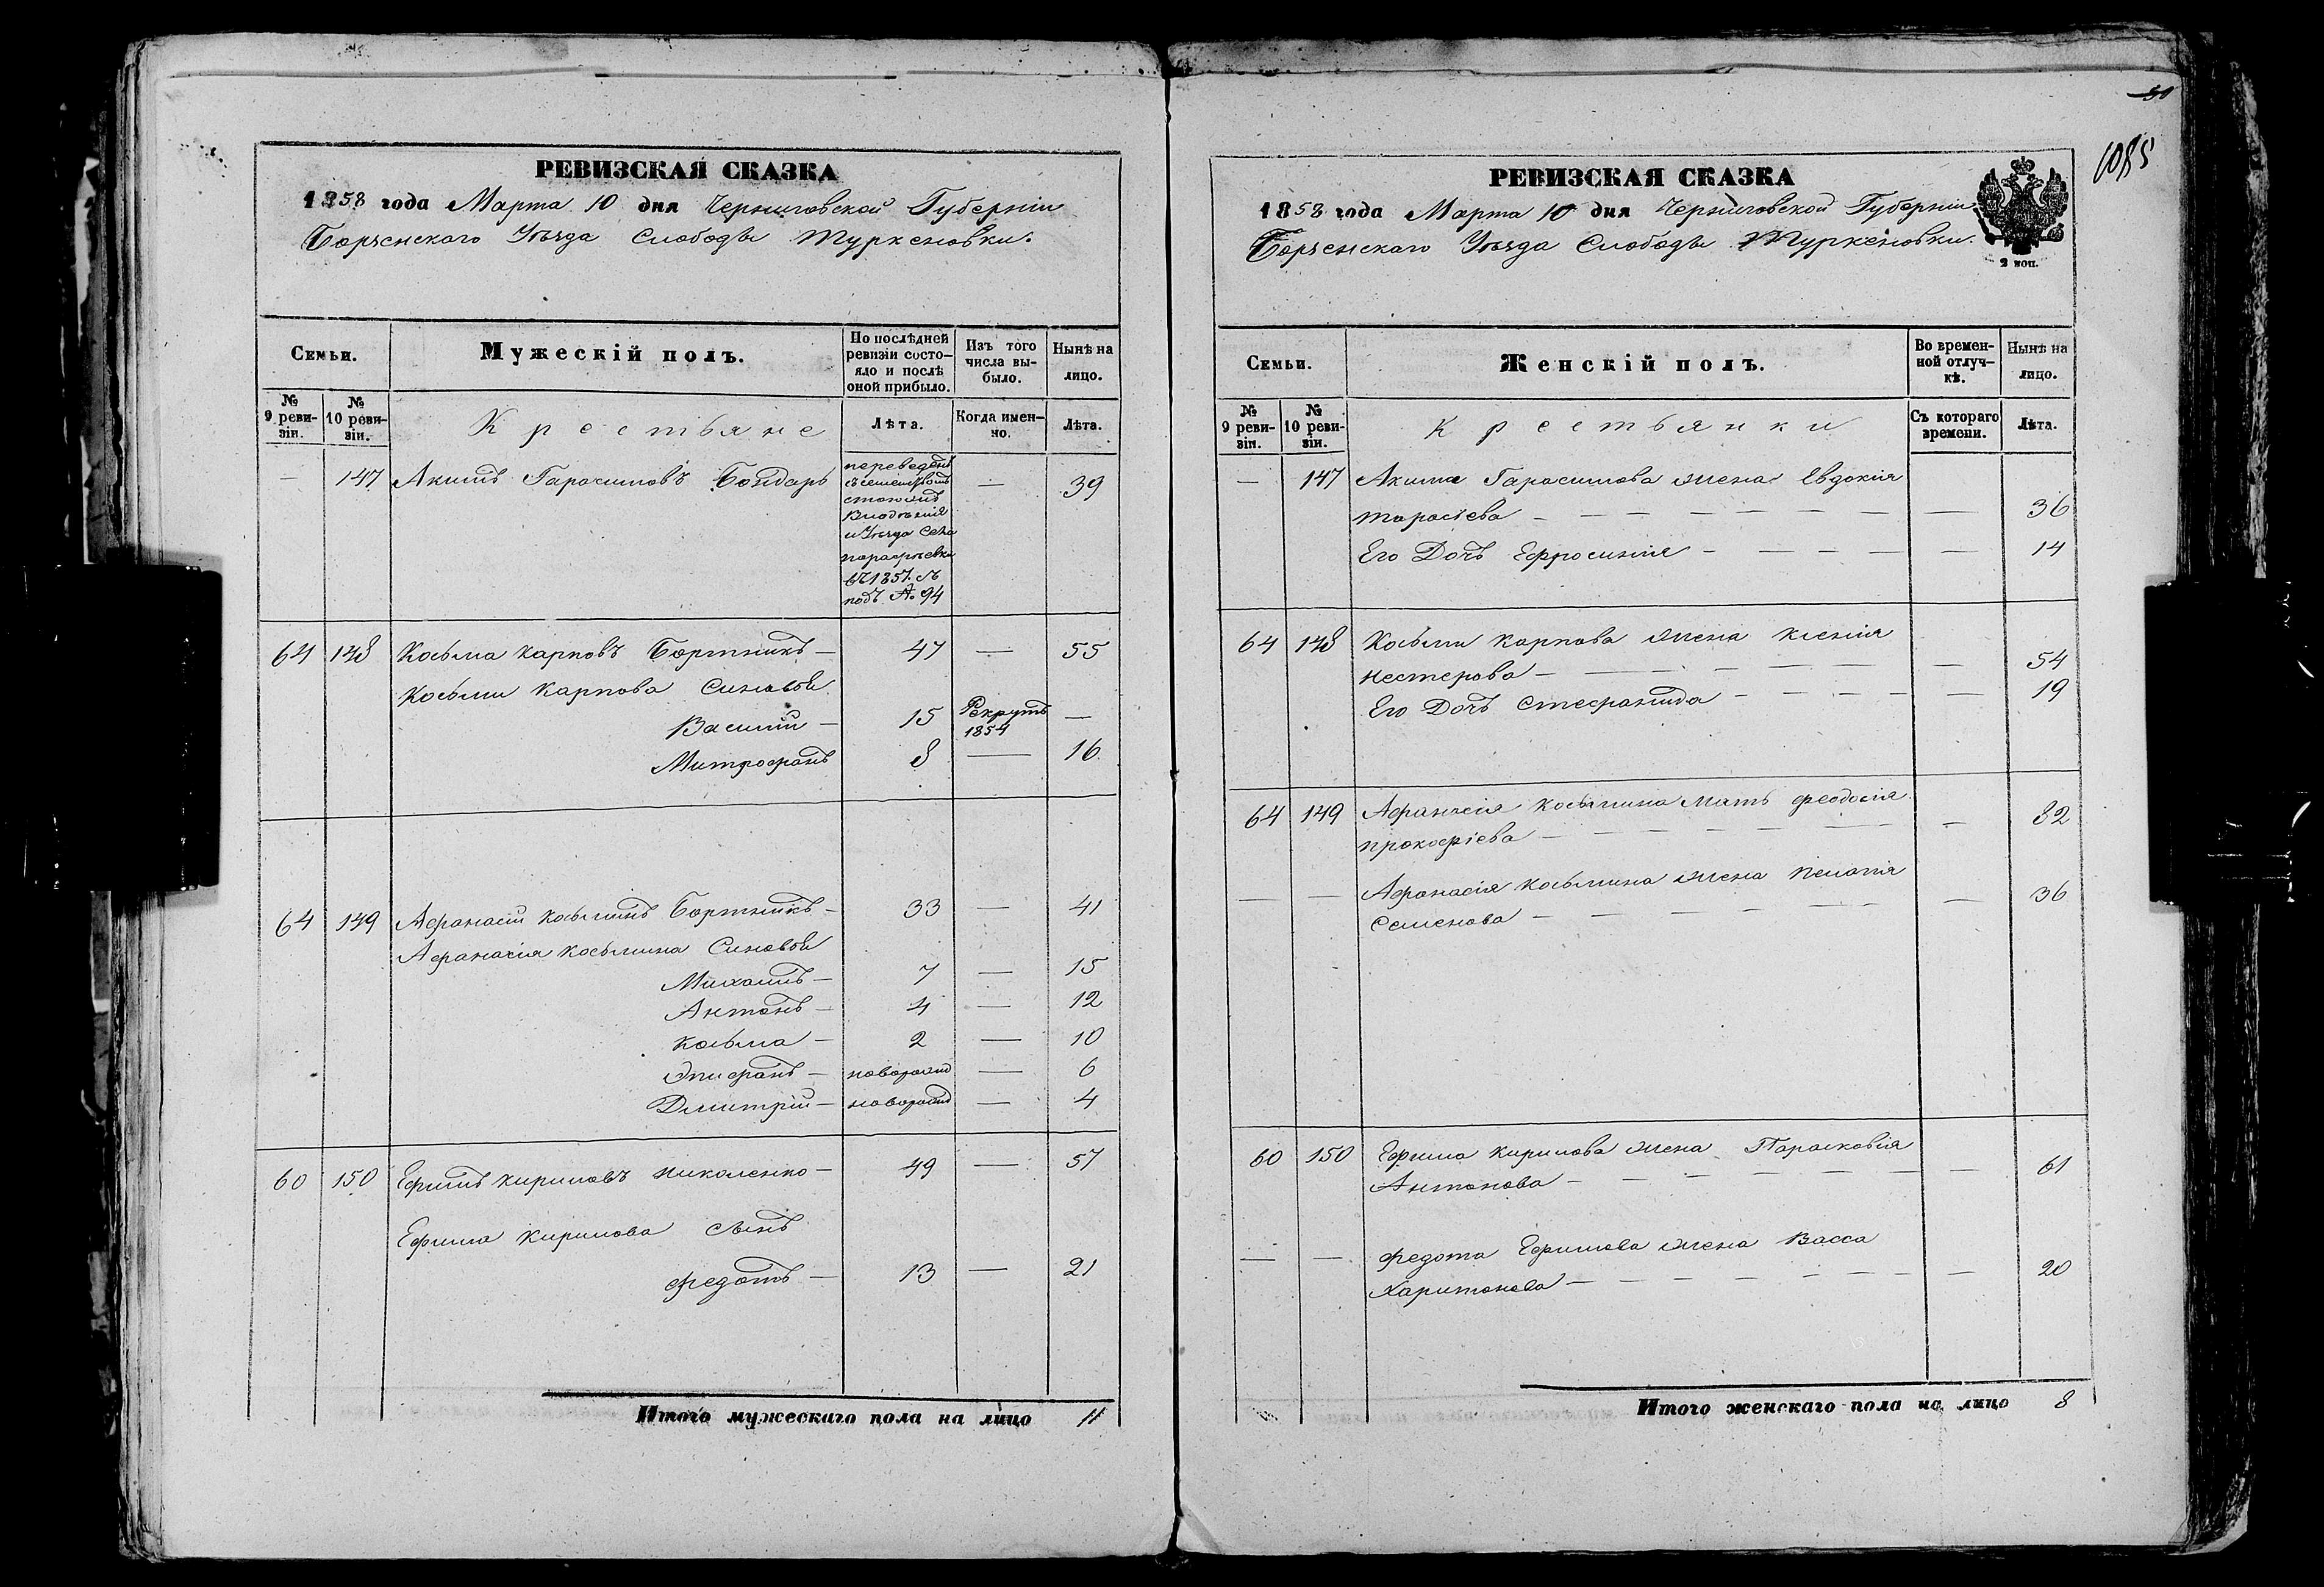 РЕВИЗСКАЯ СКАЗКА
1858 года Марта 10 дня Черниговской Губерніи
Борзенскаго Уѣзда Слободы Туркеновки.
Семьи.
Мужескій полъ.
По послѣдней ревизіи состояло и послѣ оной прибыло.
Изъ того числа выбыло.
Нынѣ на лицо.
№ 9 ревизіи.
№ 10 ревизіи.
Крестьяне
Лѣта.
Когда именно.
Лѣта.
— 147 Акимъ Гарасимовъ Бондарь — 39
переведенъ
съ семействомъ
стогожъ
Владѣнія
и Уѣзда Села
Парафѣевки
въ 1857. съ
подъ № 94
64 148 Косьма Карповъ Бортникъ — 47 — 55
Косьми Карпова Синовья
Василій — 15 Рекрутъ 1854 —
Митрофанъ 8 — 16
64 149 Афанасій Косьминъ Бортникъ — 33 — 41
Афанасія Косьмина Синовья
Михаилъ — 7 — 15
Антонъ — 4 — 12
Косьма — 2 — 10
Эпифанъ — новорожд — 6
Дмитрій — новорожд — 4
60 150 Ефимъ Кириловъ Николенко — 49 — 57
Ефима Кирилова Сынъ
Федотъ — 13 — 21
Итого мужескаго пола на лицо 11
50
1085
РЕВИЗСКАЯ СКАЗКА
1858 года Марта 10 дня Черниговской Губерніи
Борзенскаго Уѣзда Слободы Туркеновки.
2 коп.
Семьи.
Женскій полъ.
Во временной отлучкѣ.
Нынѣ на лицо.
№ 9 ревизіи.
№ 10 ревизіи.
Крестьянки
Съ котораго времени.
Лѣта.
— 147 Акима Гарасимова жена Евдокія
Тарасіева — — 36
Его Дочь Ефросинія — — 14
64 148 Косьми Карпова жена Ксенія
Нестерова — — 54
Его Дочь Стефанида — — 19
64 149 Афанасія Косьмина Мать Феодосія
Прокофіева — — 82
— — Афанасія Косьмина жена Пелагія
Семенова — — 36
60 150 Ефима Кирилова жена Парасковія
Антонова — — 61
— — Федота Ефимова жена Васса
Харитонова — — 20
Итого женскаго пола на лицо 8